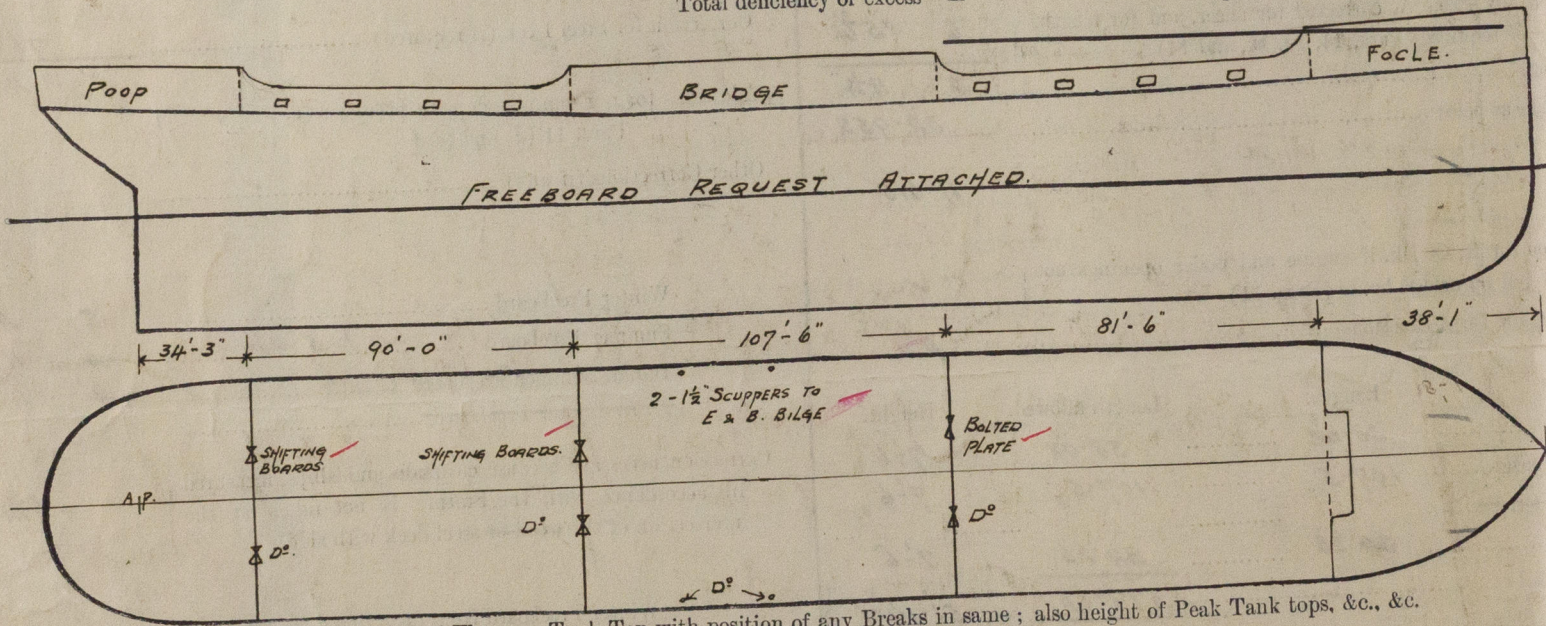 Total deficiency or excess
POOP
BRIDGE
FOCLE.
FREEBOARD REQUEST ATTACHED.
34'-3" 90'-0" 107'-6" 81'-6" 38'-1"
2 - 1½" SCUPPERS TO
E & B. BILGE
SHIFTING
BOARDS
SHIFTING BOARDS.
BOLTED
PLATE
A.P.
Dº
Dº
Dº.
Dº
Tank Top with position of any Breaks in same ; also height of Peak Tank tops, &c., &c.